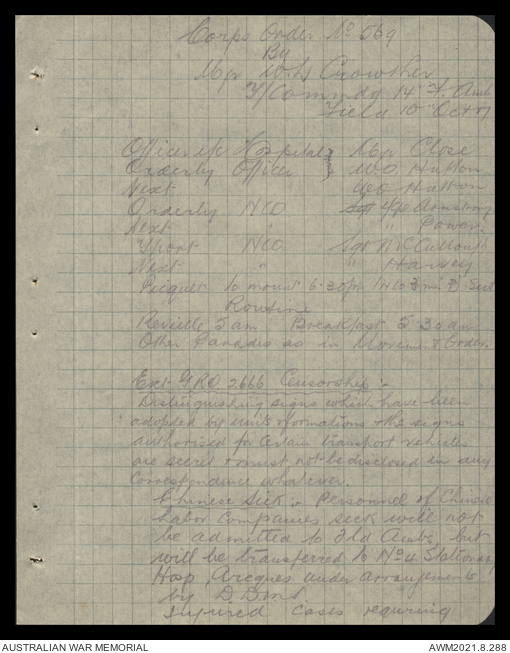 Corps Order No 569
By
Mjr W.L Crowther
T/Commdg 14th F. Amb
Field 10 Oct 17
Officer i/c Hospital } Mjr Close
Orderly Officer } W.O Hutton
Next W.O Hutton
Orderly NCO Sgt Armstrong
Next " Power
NCO Sgt McCullough
Next " Harvey
Picquet to mount 6.30pm 1 NCO 3 men
Routine
Reveille 5 am Breakfast 5.30 am
Other Parades as in Movement Order.
Ext GRO 2666 Censorship :-
Distinguishing signs which have been
adopted by units & formations & the signs
authorised for certain transport vehicles
are secret & must not be disclosed in any
correspondence whatever.
Chinese Sick :- Personnel of Chinese
Labor Companies sick will not
be admitted to Fld Ambs, but
will be transferred to No 4 Stationary
Hosp, Arcques under arrangements
by D.D.M.S.
Injured cases requiring
AUSTRALIAN WAR MEMORIAL
AWM2021.8.288